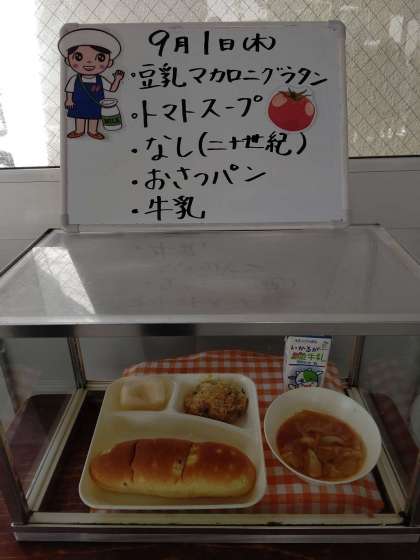 9月1日(木)
・豆乳マカロニグラタン
・トマトスープ
・なし(二十世紀)
・おさつパン
・牛乳
MILK
いかるが
牛乳